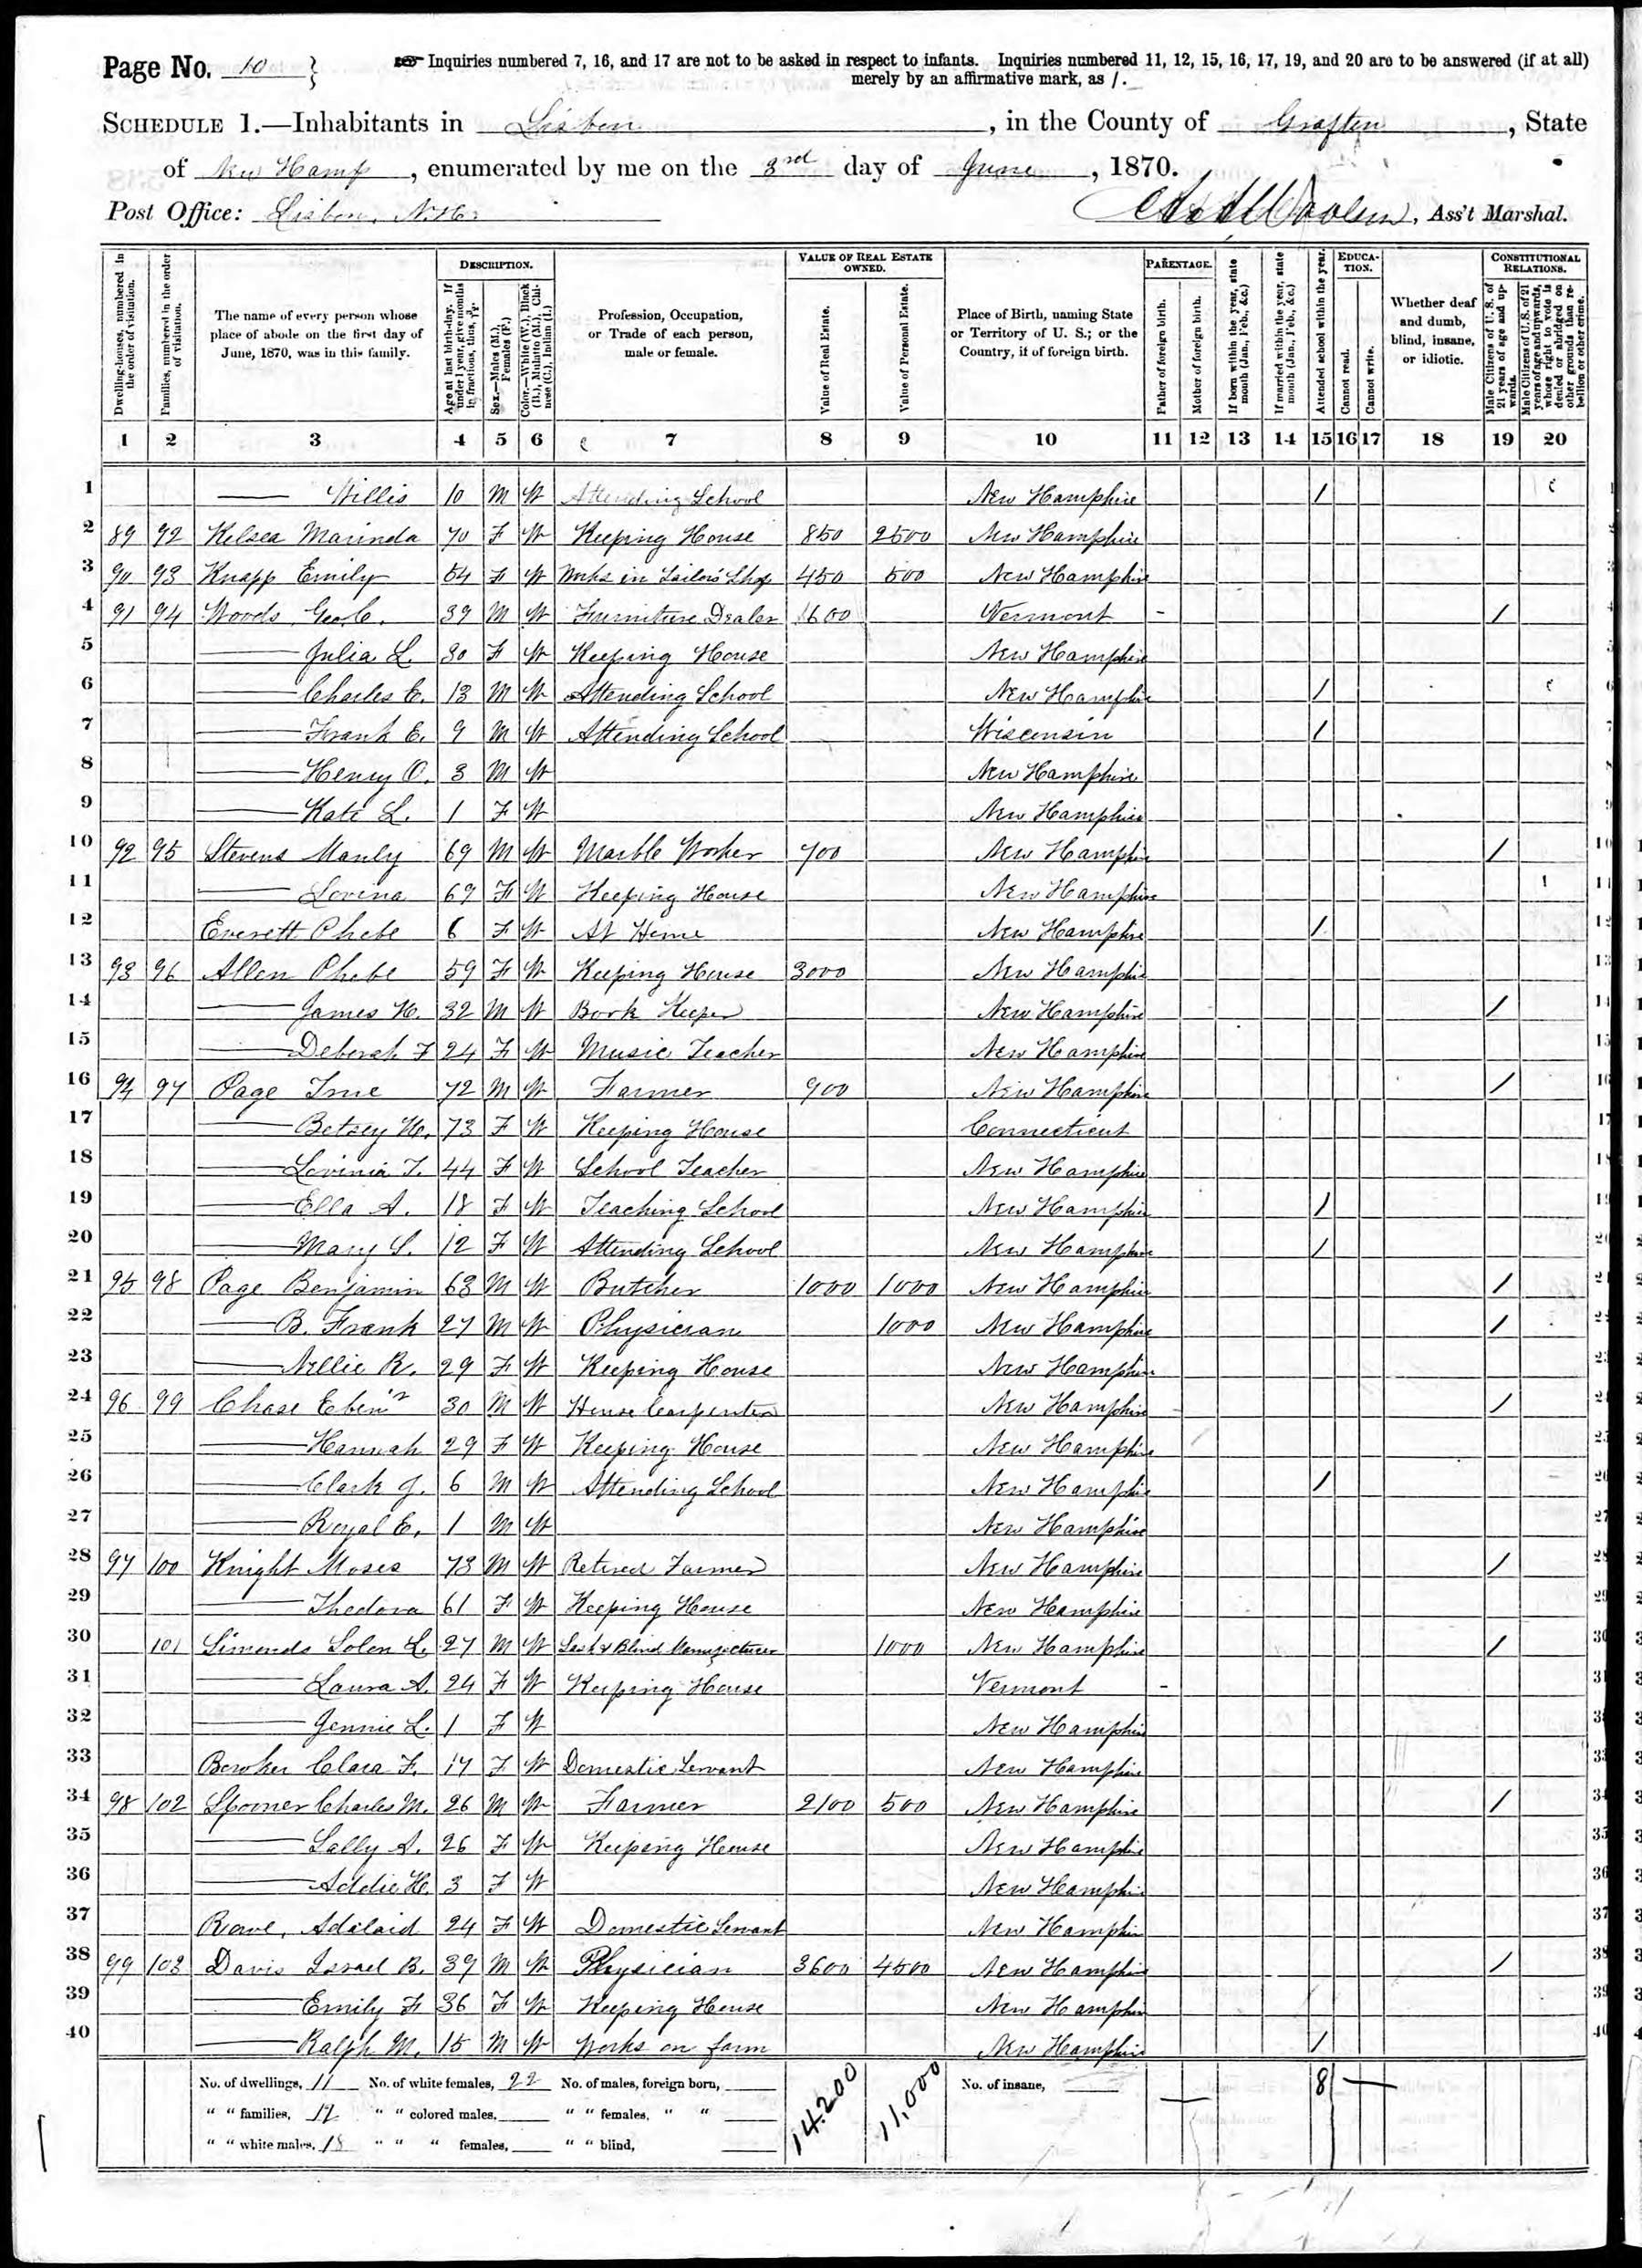 Page No. 10 }
Inquiries numbered 7, 16, and 17 are not to be asked in respect to infants. Inquiries numbered 11, 12, 15, 16, 17, 19, and 20 are to be answered (if at all)
merely by an affirmative mark, as /.
SCHEDULE 1.—Inhabitants in Lisbon, in the County of Grafton, State
of New Hamp, enumerated by me on the 3rd day of June, 1870.
Post Office: Lisbon, N.H. , Ass't Marshal.
Dwelling-houses, numbered in the order of visitation.
Families, numbered in the order of visitation.
The name of every person whose place of abode on the first day of June, 1870, was in this family.
DESCRIPTION.
Age at last birth-day. If under 1 year, give months in fractions, thus, 3/12
Sex.—Males (M.), Females (F.)
Color.—White (W.), Black (B.), Mulatto (M.), Chinese (C.), Indian (I.)
Profession, Occupation, or Trade of each person, male or female.
VALUE OF REAL ESTATE OWNED.
Value of Real Estate.
Value of Personal Estate.
Place of Birth, naming State or Territory of U. S.; or the Country, if of foreign birth.
PARENTAGE.
Father of foreign birth.
Mother of foreign birth.
If born within the year, state month (Jan., Feb., &c.)
If married within the year, state month (Jan., Feb., &c.)
Attended school within the year.
EDUCATION.
Cannot read.
Cannot write.
Whether deaf and dumb, blind, insane, or idiotic.
CONSTITUTIONAL RELATIONS.
Male Citizens of U. S. of 21 years of age and upwards.
Male Citizens of U. S. of 21 years of age and upwards, whose right to vote is denied or abridged on other grounds than rebellion or other crime.
1 2 3 4 5 6 7 8 9 10 11 12 13 14 15 16 17 18 19 20
1 — Willis 10 M W Attending School New Hampshire / 1
2 89 92 Kelsea Marinda 70 F W Keeping House 850 2500 New Hampshire 2
3 90 93 Knapp Emily 54 F W Works in Tailors Shop 450 500 New Hampshire 3
4 91 94 Woods Geo. C. 39 M W Furniture Dealer 1600 Vermont - / 4
5 — Julia L. 30 F W Keeping House New Hampshire 5
6 — Charles C. 13 M W Attending School New Hampshire / 6
7 — Frank E. 9 M W Attending School Wisconsin / 7
8 — Henry O. 3 M W New Hampshire 8
9 — Kate L. 1 F W New Hampshire 9
10 92 95 Stevens Manly 69 M W Marble Worker 700 New Hampshire / 10
11 — Lovina 69 F W Keeping House New Hampshire 11
12 Everett Phebe 6 F W At Home New Hampshire / 12
13 93 96 Allen Phebe 59 F W Keeping House 3000 New Hampshire 13
14 — James H. 32 M W Book Keeper New Hampshire / 14
15 — Deborah F 24 F W Music Teacher New Hampshire 15
16 94 97 Page True 72 M W Farmer 900 New Hampshire / 16
17 — Betsey H. 73 F W Keeping House Connecticut 17
18 — Lovinia T. 44 F W School Teacher New Hampshire 18
19 — Ella A. 18 F W Teaching School New Hampshire / 19
20 — Mary S. 12 F W Attending School New Hampshire / 20
21 95 98 Page Benjamin 63 M W Butcher 1000 1000 New Hampshire / 21
22 — B. Frank 27 M W Physician 1000 New Hampshire / 22
23 — Nellie R. 29 F W Keeping House New Hampshire 23
24 96 99 Chase Eben'r 30 M W House Carpenter New Hampshire / 24
25 — Hannah 29 F W Keeping House New Hampshire 25
26 — Clark J. 6 M W Attending School New Hampshire / 26
27 — Royal E. 1 M W New Hampshire 27
28 97 100 Knight Moses 73 M W Retired Farmer New Hampshire / 28
29 — Thedora 61 F W Keeping House New Hampshire 29
30 101 Simonds Solon L. 27 M W Sash & Blind Manufacturer 1000 New Hampshire / 30
31 — Laura A. 24 F W Keeping House Vermont - 31
32 — Jennie L. 1 F W New Hampshire 32
33 Bowker Clara F. 17 F W Domestic Servant New Hampshire 33
34 98 102 Spooner Charles M. 26 M W Farmer 2100 500 New Hampshire / 34
35 — Sally A. 26 F W Keeping House New Hampshire 35
36 — Addie H. 3 F W New Hampshire 36
37 Rowe, Adelaid 24 F W Domestic Servant New Hampshire 37
38 99 103 Davis Israel B. 39 M W Physician 3600 4500 New Hampshire / 38
39 — Emily F 36 F W Keeping House New Hampshire 39
40 — Ralph M. 15 M W Works on farm New Hampshire / 40
No. of dwellings, 11 No. of white females, 22 No. of males, foreign born, 14200 11,000 No. of insane, 8
" " families, 12 " " colored males, " " females, " "
" " white males, 18 " " " females, " " blind,